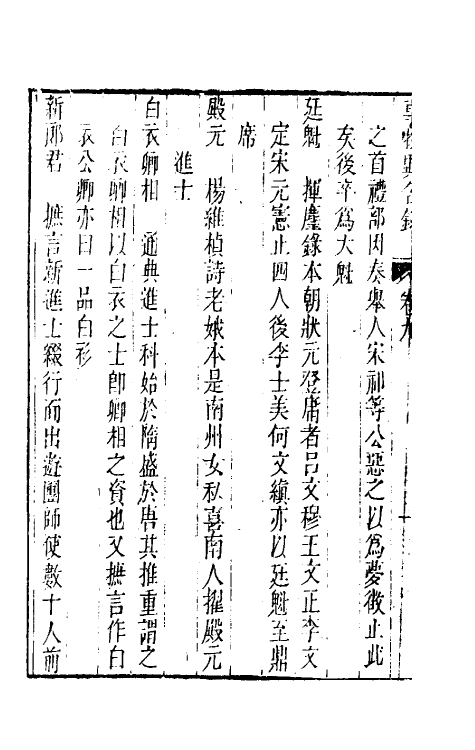 事物異名錄 卷九
之首禮部因奏舉人宋祁等公惡之以為夢徵止此
矣後卒為大魁
廷魁 揮麈錄本朝狀元登庸者呂文穆王文正李文
定宋元憲止四人後李士美何文縝亦以廷魁至鼎
席
殿元 楊維楨詩老娥本是南州女私喜南人擢殿元
進士
白衣卿相 通典進士科始於隋盛於唐其推重謂之
白衣卿相以白衣之士卽卿相之資也又摭言作白
衣公卿亦曰一品白衫
新郎君 摭言新進士綴行而出遊團師使數十人前